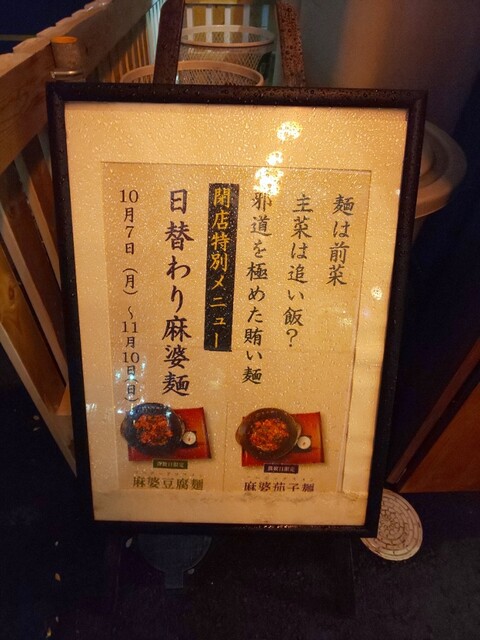 麺は前菜
主菜は追い飯?
邪道を極めた賄い麺
閉店特別メニュー
日替わり麻婆麺
10月7日(月)~11月10日(日)
麻婆茄子麺
麻婆豆腐麺